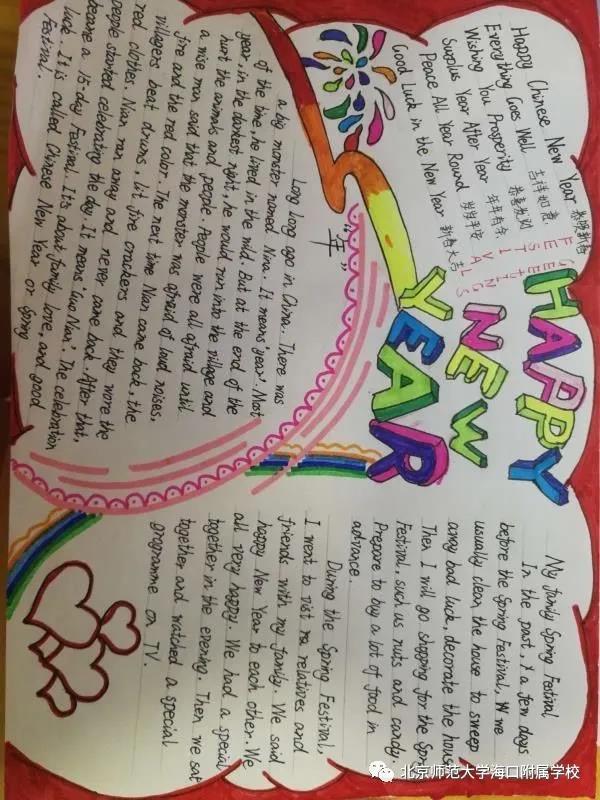 Happy Chinese New Year 恭贺新春
Everything Goes Well 吉祥如意
Wishing You Prosperity 恭喜发财
Surplus Year After Year 年年有余
Peace All Year Round 岁岁平安
Good Luck in the New Year 新春大吉
HAPPY
NEW
YEAR
"年"
Long long ago in China. There was
a big monster named Nina. It means 'year'. Most
of the time, he lived in the wild. But at the end of the
year, in the darkest night, he would run into the village and
hurt the animals and people. People were all afraid until
a wise man said that the monster was afraid of loud noises,
fire and the red color. The next time Nian came back, the
villagers beat drums, lit fire crackers and they wore the
red clothes. Nian ran away and never came back. After that,
people started celebrating the day. It means 'Guo Nian'. The celebration
became a 15 day Festival. It's about family love, and good
luck. It is called Chinese New Year or Spring
Festival.
My family Spring Festival
In the part, a few days
before the Spring Festival, we
usually clean the house to sweep
away bad luck, decorate the house
Then I will go shopping for the Spring
Festival, such us nuts and candy.
Prepare to buy a lot of food in
advance.
During the Spring Festival,
I went to visit relatives and
friends with my family. We said
happy New Year to each other. We
all very happy. We had a special
together in the evening. Then we sat
together and watched a special
programme on TV.
北京师范大学海口附属学校